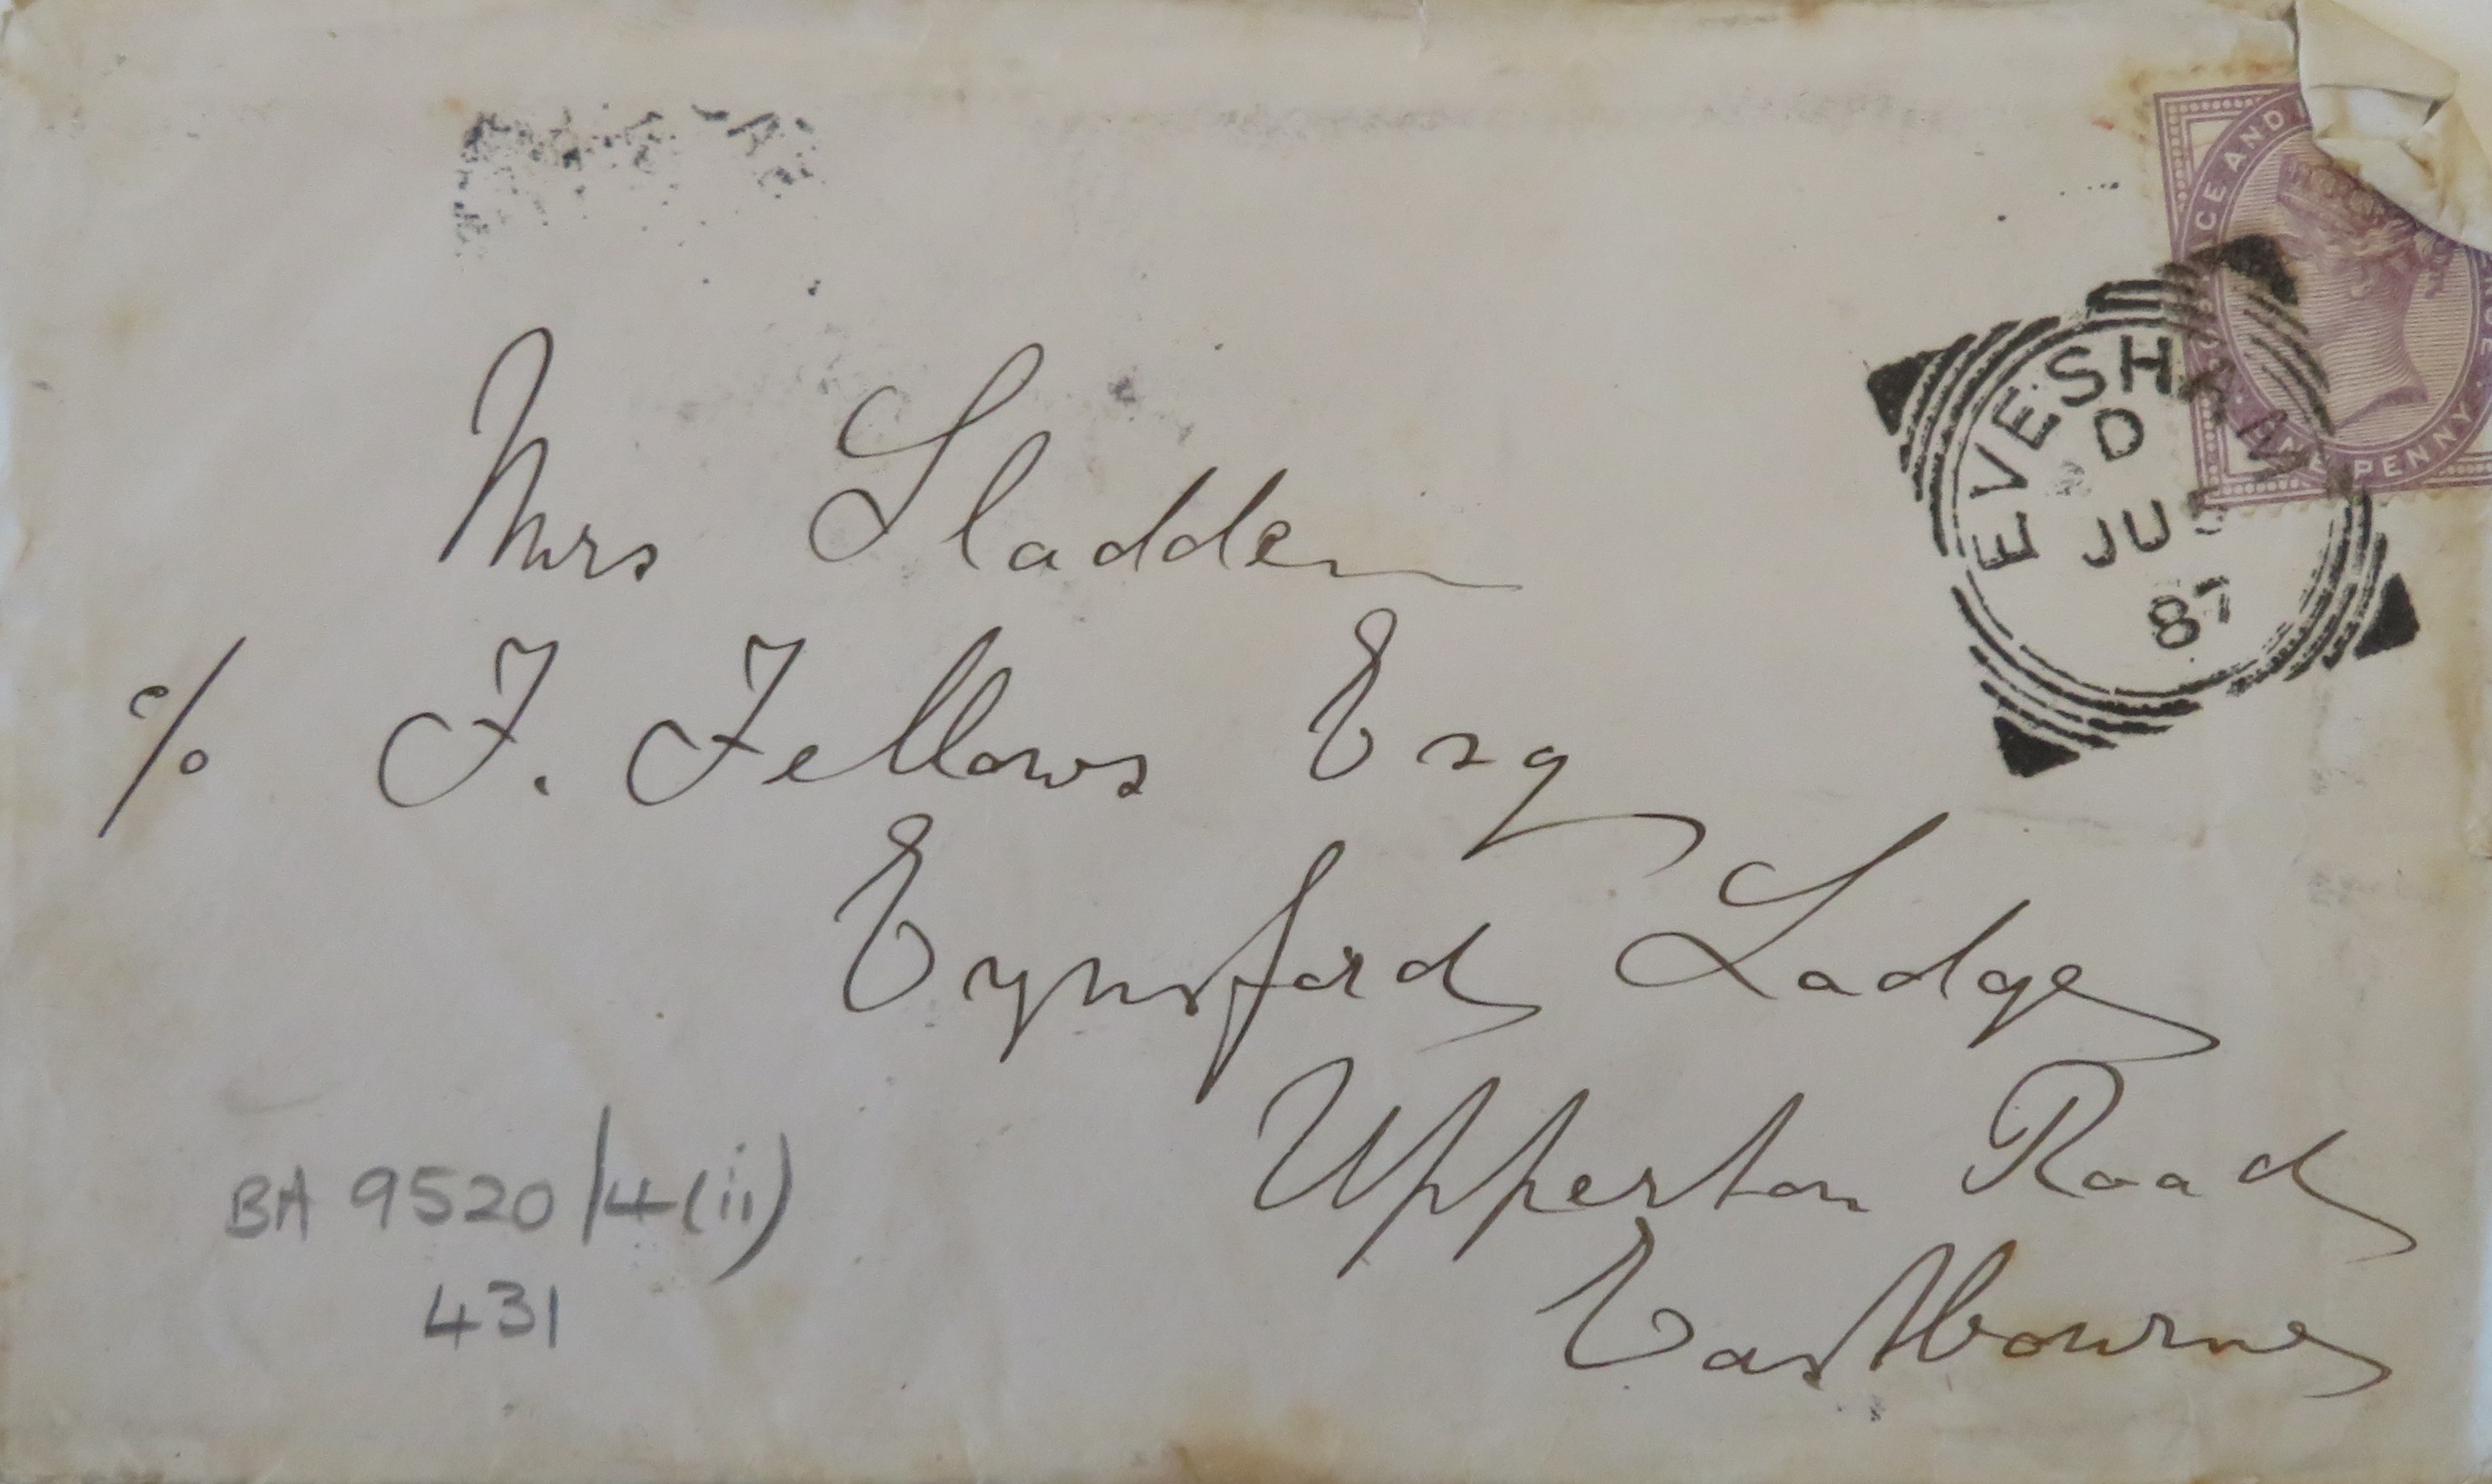 Mrs Sladden
c/o F. Fellows Esq
Eynsford Lodge
Upperton Road
Eastbourne
BA 9520/4(ii)
431
EVESHAM
D
JU 5
87
ICE AND
ONE PENNY